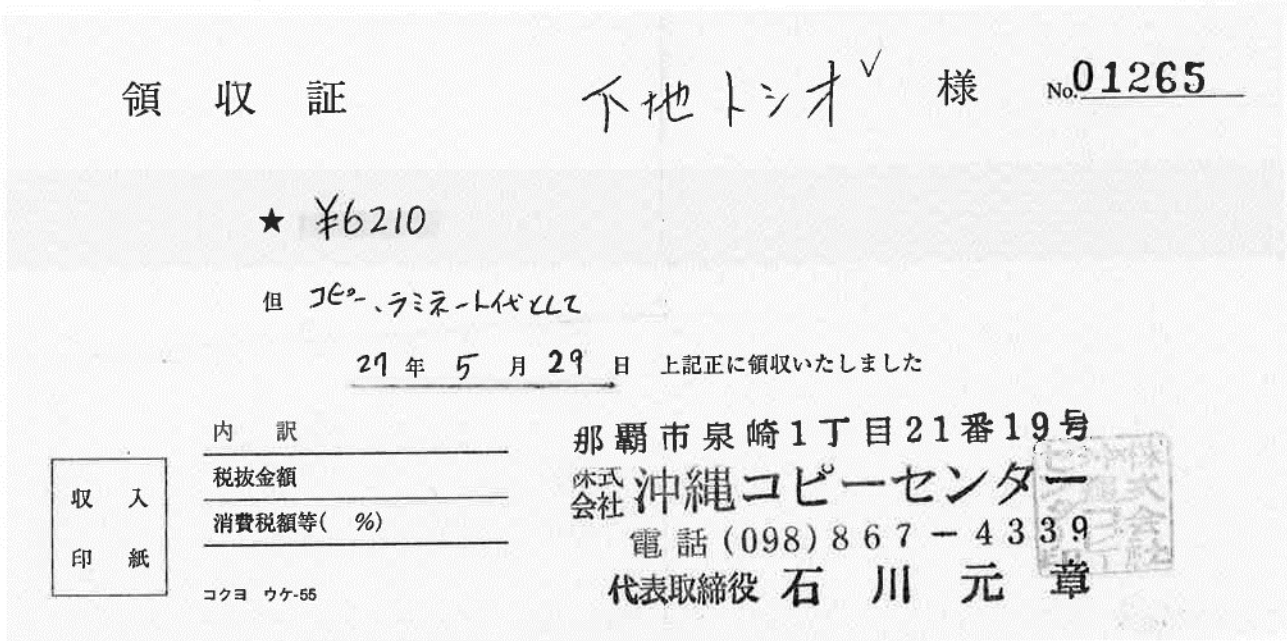 領収証 下地トシオ 様 No.01265
★ ¥6210
但 コピー、ラミネート代として
27年5月29日 上記正に領収いたしました
内訳
税抜金額
消費税額等( %)
収入
印紙
コクヨ ウケ-55
那覇市泉崎1丁目21番19号
株式会社 沖縄コピーセンター
電話(098)867-4339
代表取締役 石川元章